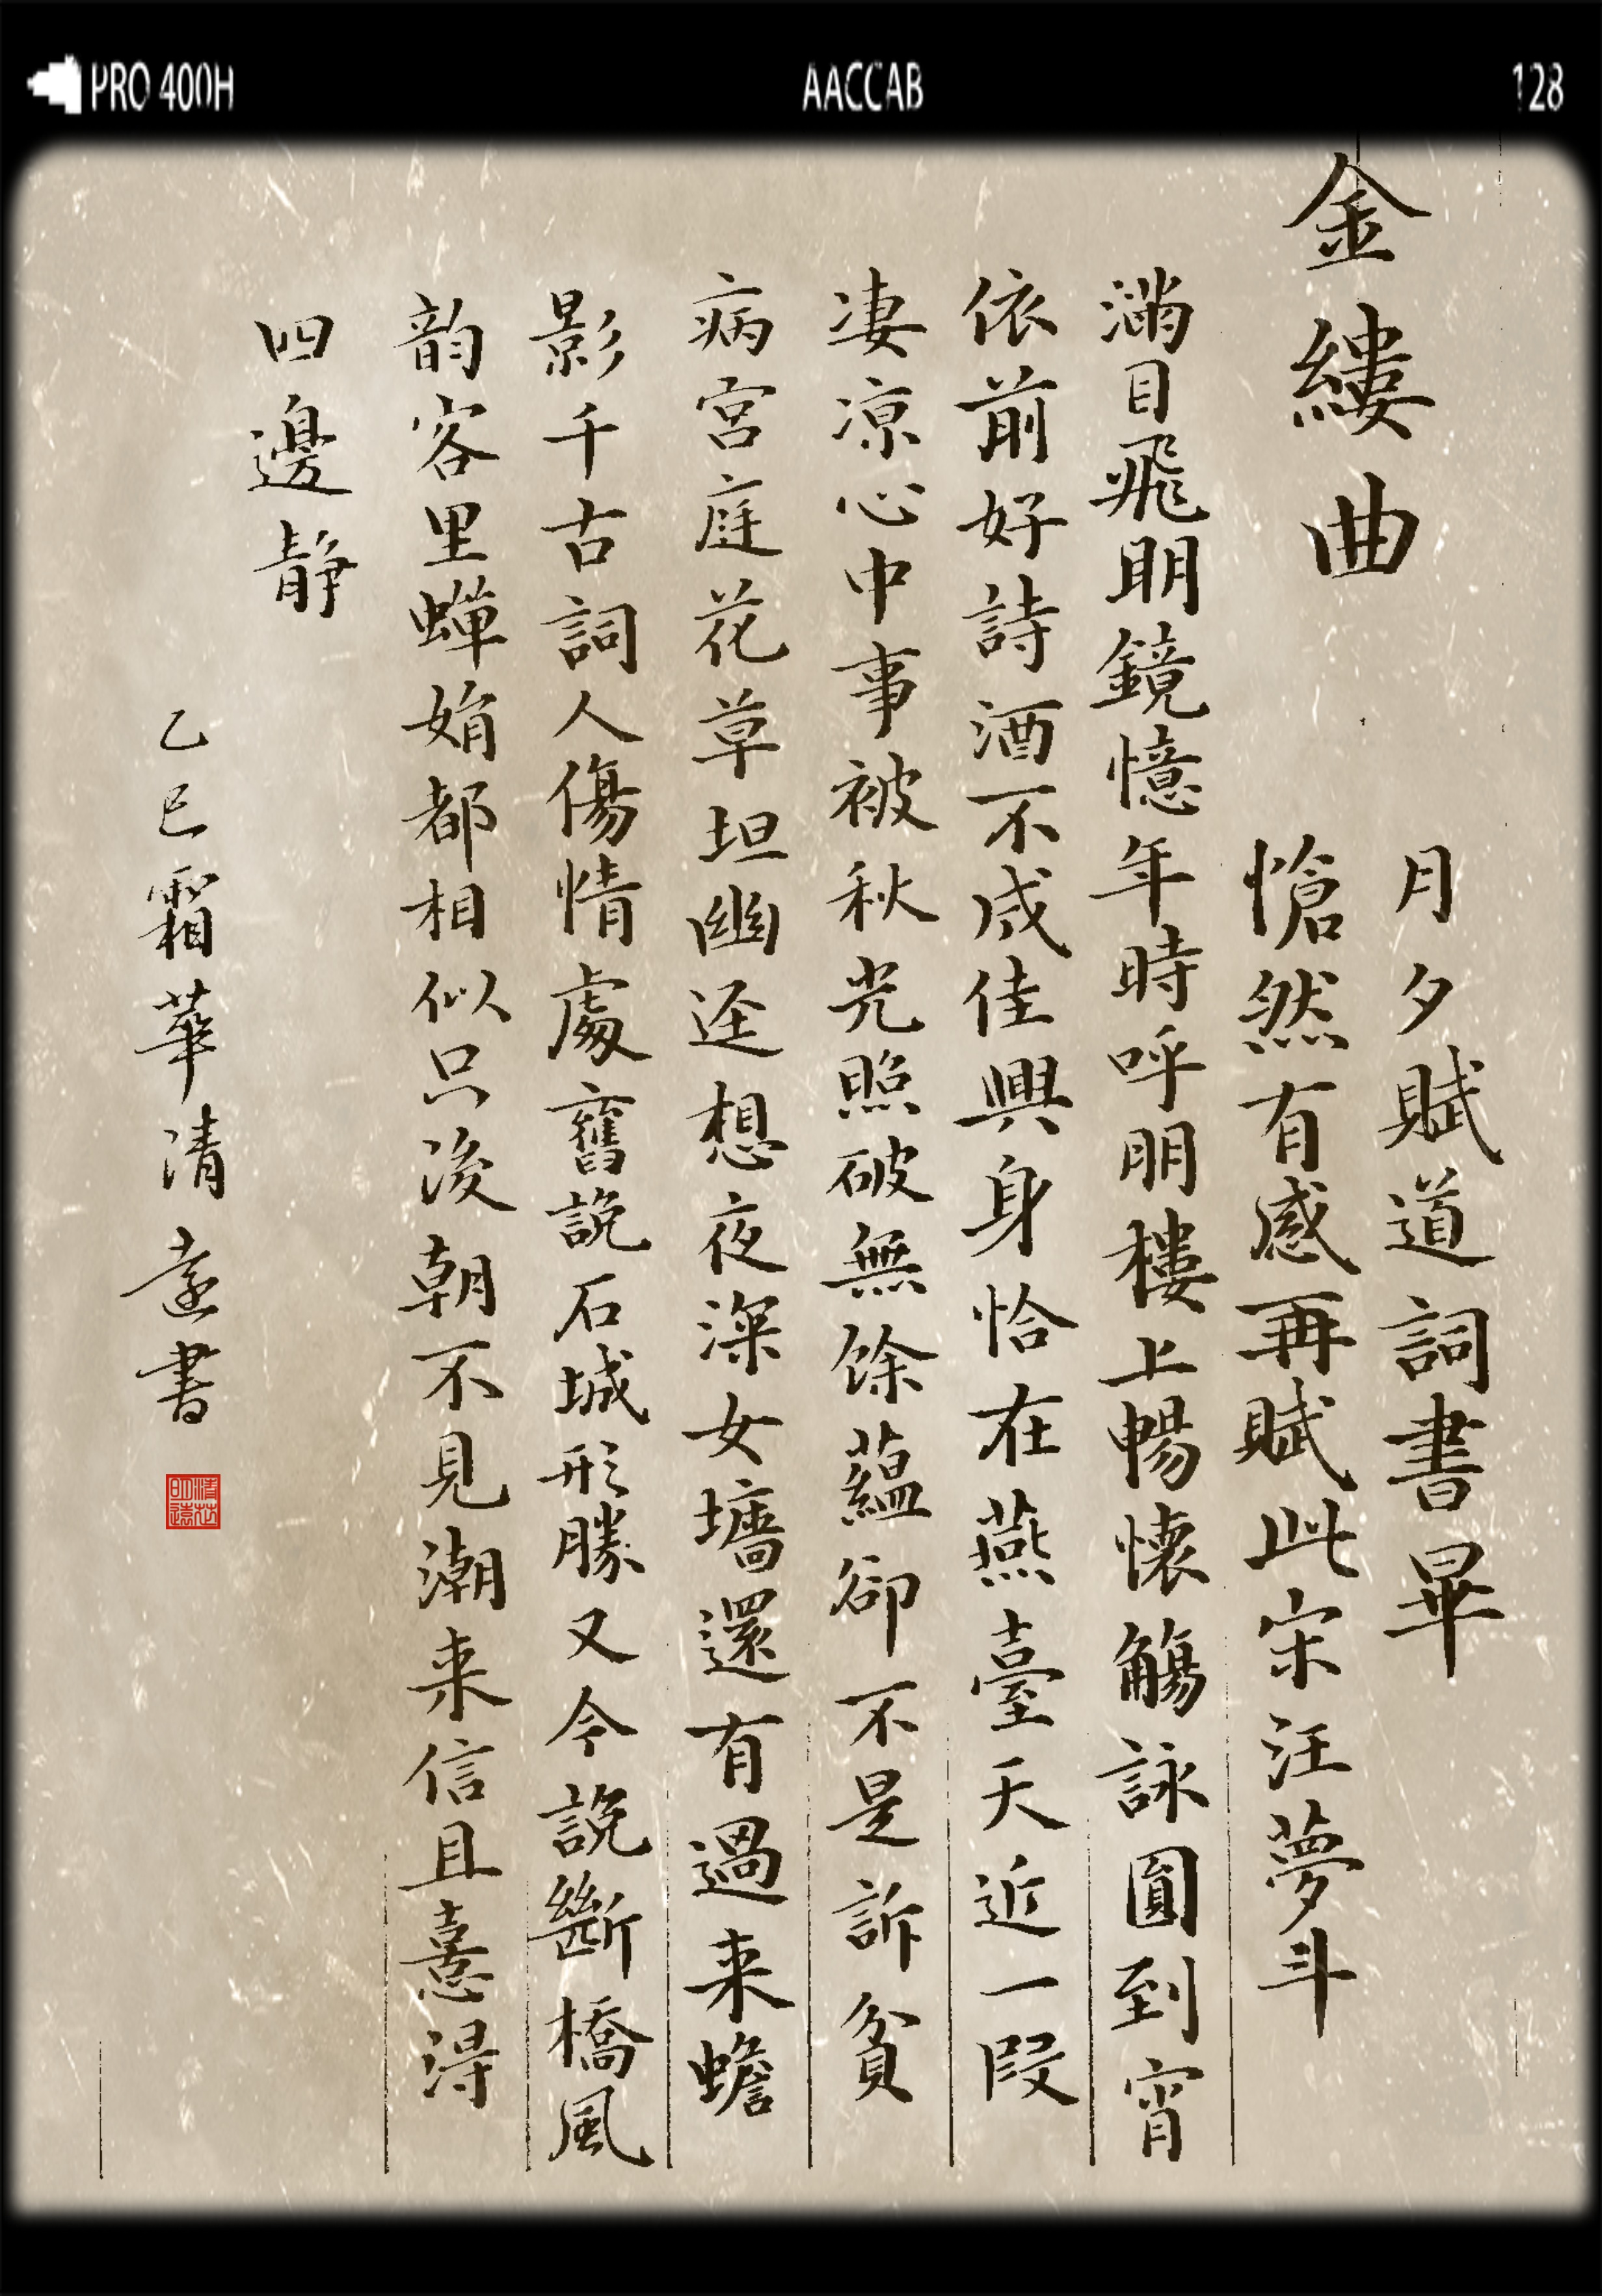 PRO 400H
AACCAB
128
金縷曲
月夕賦道詞書畢
愴然有感再賦此宋汪夢斗
滿目飛明鏡憶年時呼朋樓上暢懷觴詠圓到宵
依前好詩酒不成佳興身恰在燕臺天近一段
凄凉心中事被秋光照破無馀蘊卻不是訴貧
病宮庭花草坦幽迳想夜深女墻還有過来蟾
影千古詞人傷情處舊説石城形勝又今説斷橋風
韵客里蟬娟都相似只後朝不見潮来信且憙得
四邊靜
乙巳霜華清遠書